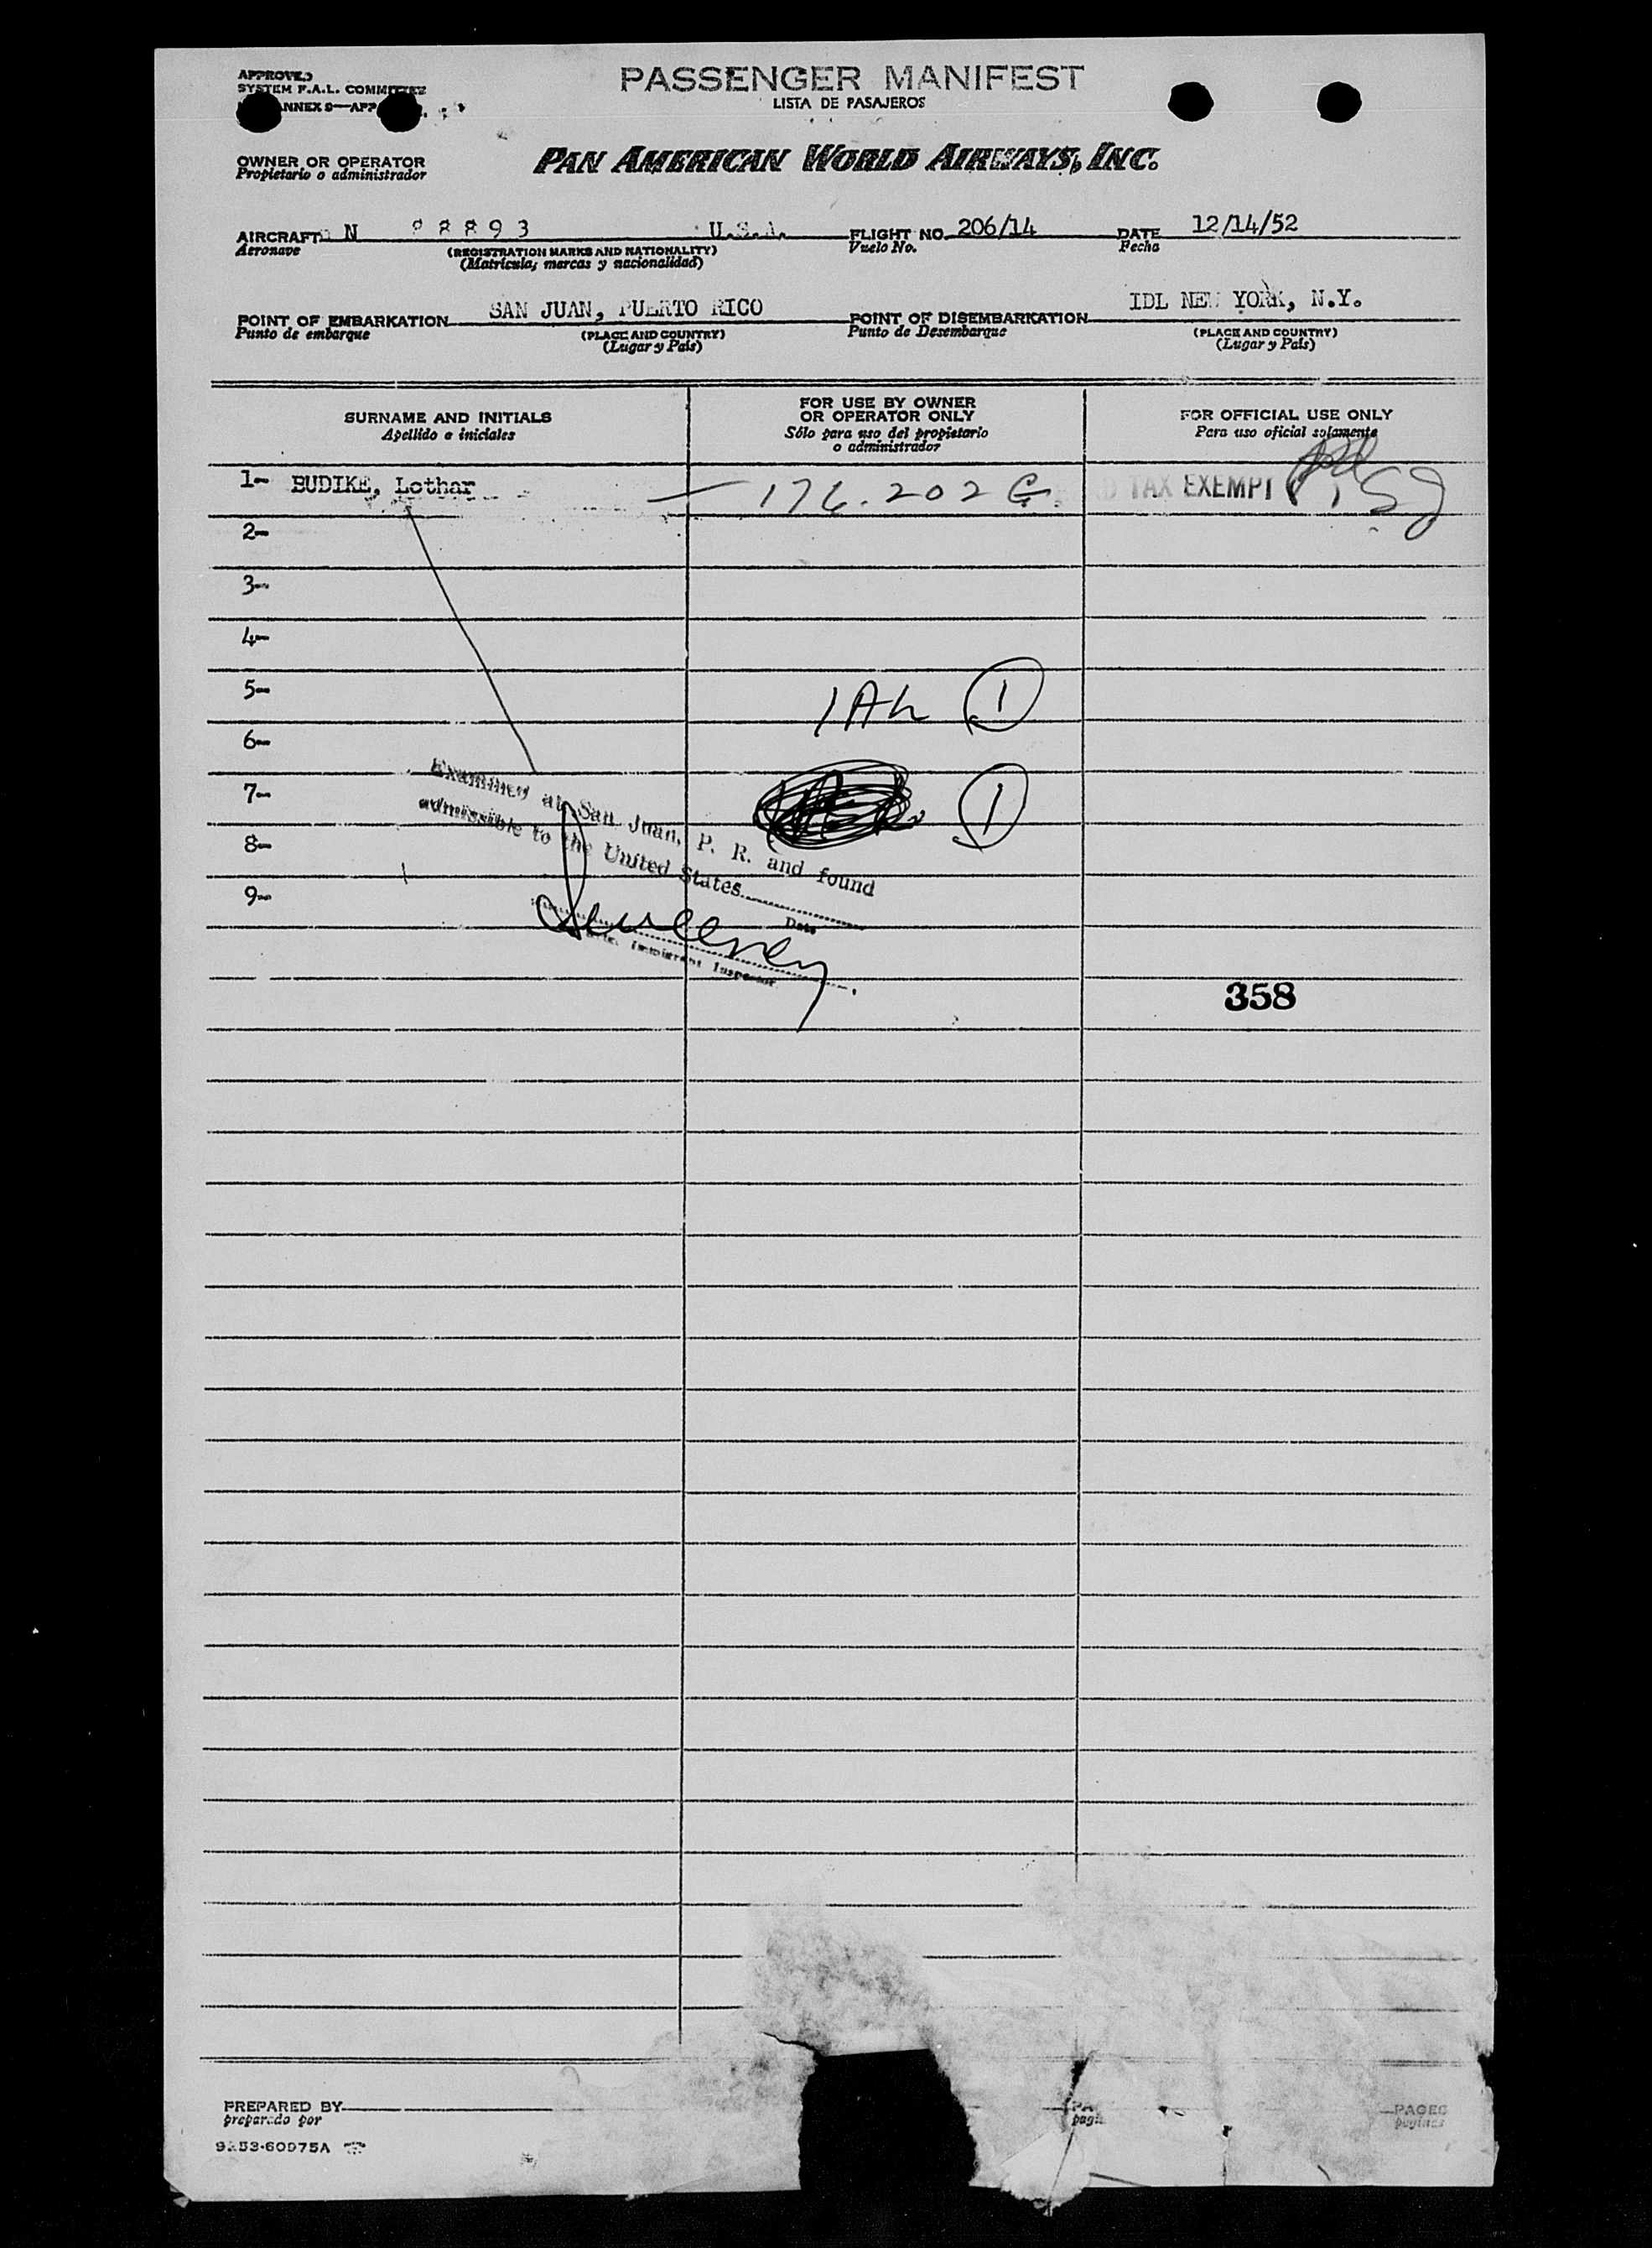 APPROVED
SYSTEM F.A.L. COMMITTEE
ANNEX 9—APP
PASSENGER MANIFEST
LISTA DE PASAJEROS
OWNER OR OPERATOR
Propietario o administrador
PAN AMERICAN WORLD AIRWAYS, INC.
AIRCRAFT N 88893 U.S.A. FLIGHT NO. 206/14 DATE 12/14/52
Aeronave (REGISTRATION MARKS AND NATIONALITY) Vuelo No. Fecha
(Matrícula, marcas y nacionalidad)
POINT OF EMBARKATION SAN JUAN, PUERTO RICO POINT OF DISEMBARKATION IDL NEW YORK, N.Y.
Punto de embarque (PLACE AND COUNTRY) Punto de Desembarque (PLACE AND COUNTRY)
(Lugar y País) (Lugar y País)
SURNAME AND INITIALS FOR USE BY OWNER OR OPERATOR ONLY FOR OFFICIAL USE ONLY
Apellido e iniciales Sólo para uso del propietario o administrador Para uso oficial solamente
1- BUDIKE, Lothar — 176.202 G. TAX EXEMPT
2-
3-
4-
5- 1
6-
7- 1
8-
9-
Examined at San Juan, P. R. and found
admissible to the United States
Date
Sweeney
Immigrant Inspector
358
PREPARED BY PAGES
preparado por paginas